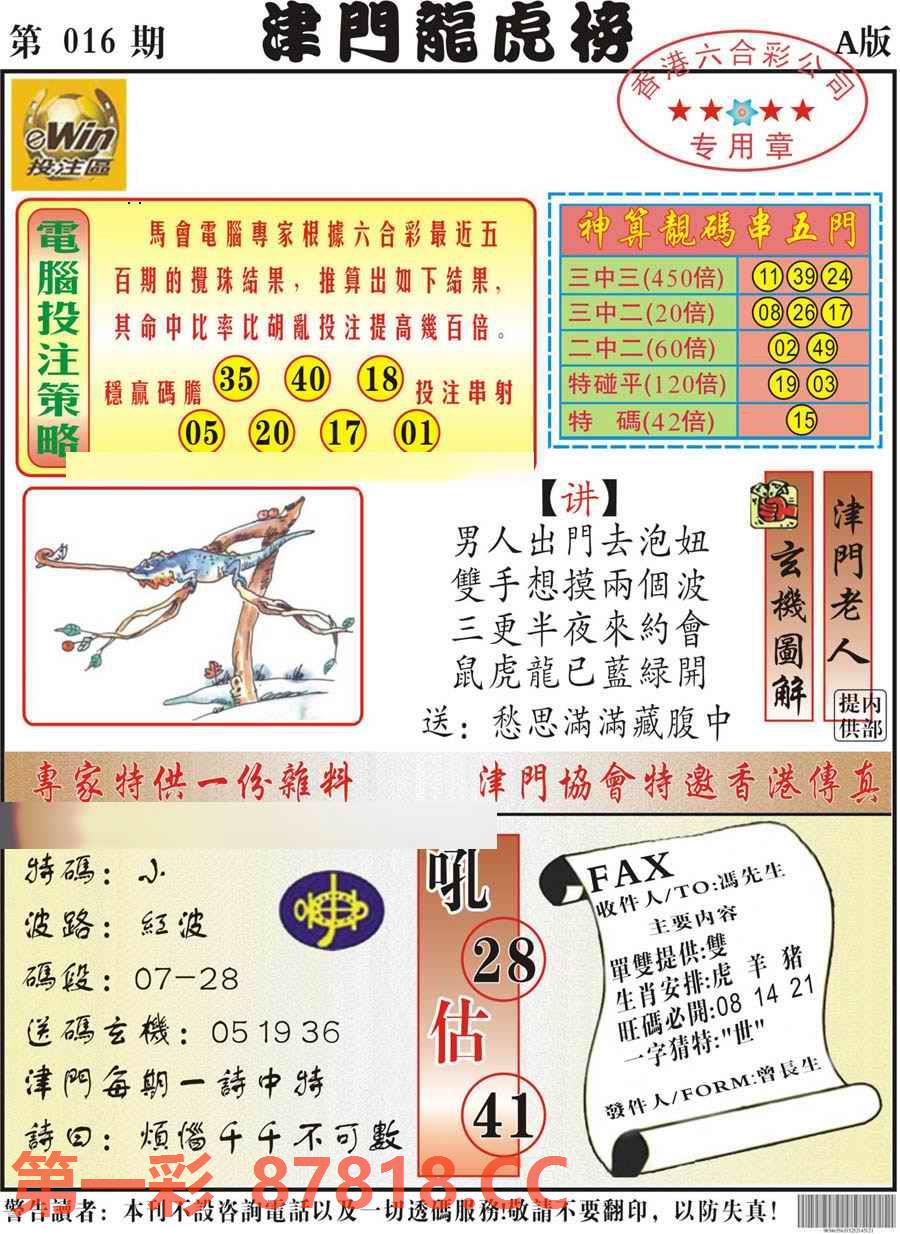 第 016 期
津門龍虎榜
A版
香港六合彩公司
专用章
eWin
投注區
電腦投注策略
馬會電腦專家根據六合彩最近五
百期的攪珠結果，推算出如下結果，
其命中比率比胡亂投注提高幾百倍。
穩贏碼膽 35 40 18 投注串射
05 20 17 01
神算靚碼串五門
三中三(450倍) 11 39 24
三中二(20倍) 08 26 17
二中二(60倍) 02 49
特碰平(120倍) 19 03
特 碼(42倍) 15
【讲】
男人出門去泡妞
雙手想摸兩個波
三更半夜來約會
鼠虎龍已藍緑開
送：愁思滿滿藏腹中
玄機圖解
津門老人
提内
供部
專家特供一份雜料
津門協會特邀香港傳真
特碼：小
波路：紅波
碼段：07-28
送碼玄機：05 19 36
津門每期一詩中特
詩曰：煩惱千千不可數
吼
28
估
41
FAX
收件人/TO:馮先生
主要内容
單雙提供:雙
生肖安排:虎 羊 豬
旺碼必開:08 14 21
一字猜特:"世"
發件人/FORM:曾長生
第一彩 87818.CC
警告讀者：本刊不設咨詢電話以及一切透碼服務!敬請不要翻印，以防失真！